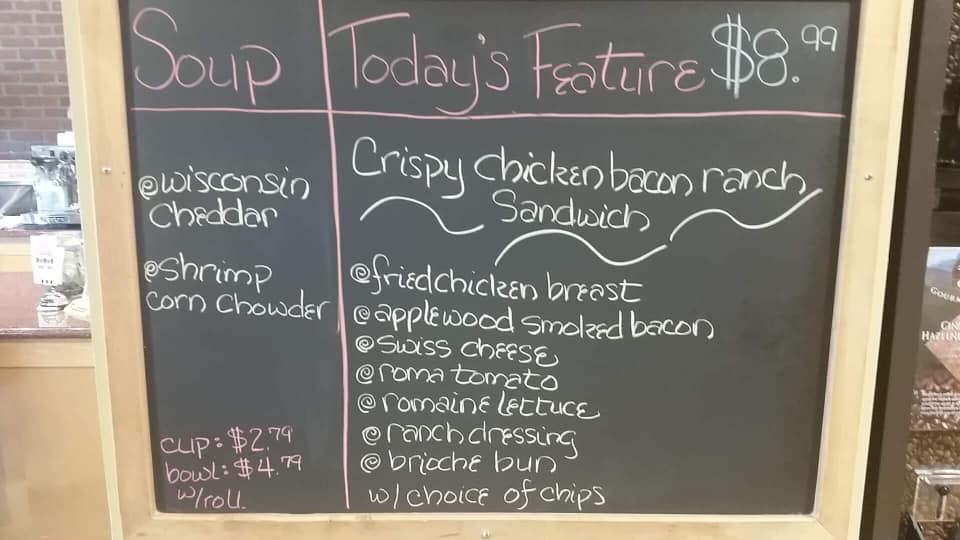 Soup
@wisconsin
cheddar
@shrimp
corn chowder
cup: $2.79
bowl: $4.79
w/roll
Today's Feature $8.99
Crispy chicken bacon ranch
Sandwich
@fried chicken breast
@applewood smoked bacon
@swiss cheese
@roma tomato
@romaine lettuce
@ranch dressing
@brioche bun
w/choice of chips